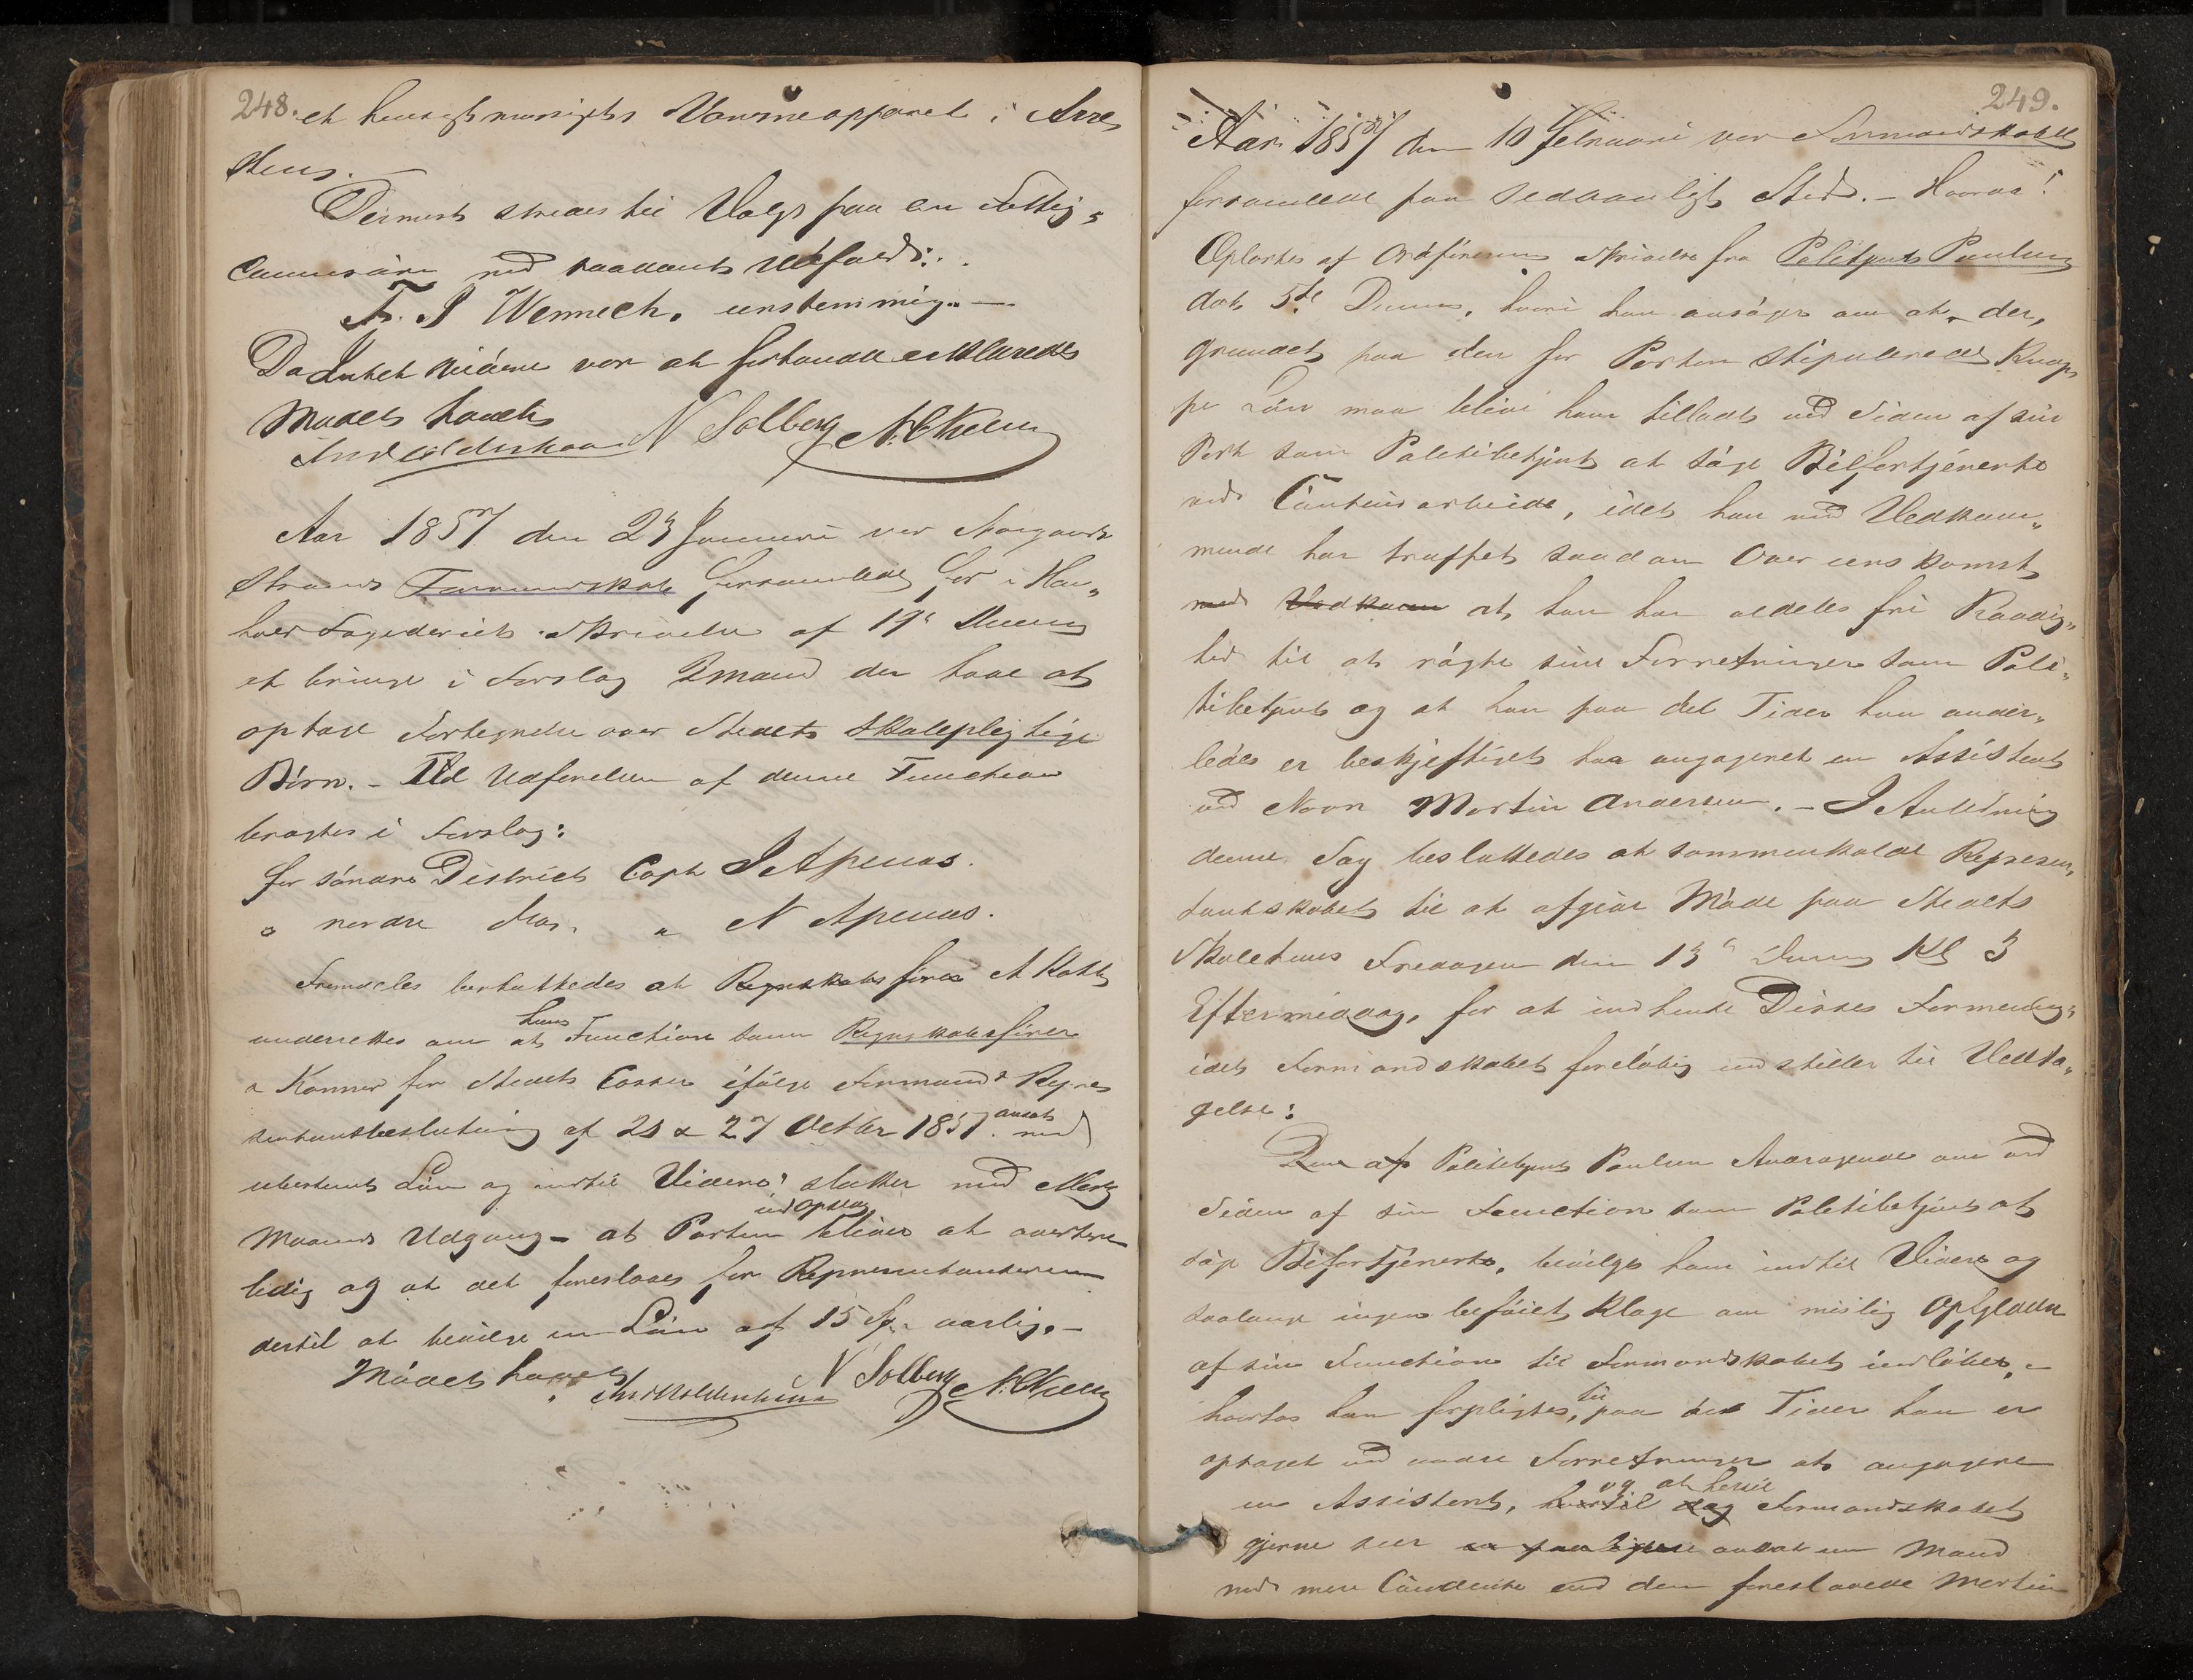 248.
et hensigtsmæssigts Varmeapparet i Arre„
sthus.
Dernæst skredes til Valgs paa en Fattig„
Commisair med saadant Udfald:
Fr. J Wennech, enstemmig.—
Da Intet videre var at forhandle erklæredes
Mødet hævet
N Solberg
Aar 1857 den 23 Januari var Aasgaard
strands Formandskab forsamlede for i Hen„
hold Fogderiets Skrivelse af 19d Dennes
at bringe i Forslag 2 Mænd der have at
optage Fortegnelse over Stedets skolepligtige
Börn. – Til Udførelsen af denne Function
bragtes i Forslag:
for söndre District Capt J Apenas.
" nordre do. " N Apenes.
Fremdeles besluttedes at Regnskabsförer A Katt
underrettes om at hans Function som Regnskabsfører
a Kæmner for Stedets Casse ifølge Formand & Repræ
sentantbeslutning af 23 & 27 Octbr 1851 ansat med
ubestemt Lön og indtil Videre: slutter med Marts
Maaneds Udgang – at Posten bliver ved Opslag at avertere
ledig og at det foreslaaes for Repræsentanterne
dertil at bevilge en Lön af 15 Sp. aarlig.–
Mödet hævet
N Solberg
249.
Aar 1857 den 10 Februari var Formandskabet
forsamlede paa sedvanligt Sted. – Hvorda:
Oplæstes af Ordföreren Skrivelse fra Politibetjent Paulsen
dat 5te Dennes, hvori han ansöger om at der,
grundet paa den for Posten stipulerede knap„
pe Lön maa blive ham tilladt ved Siden af sin
Post som Politibetjent at söge Bifortjeneste
ved Contoirarbeide, idet han med Vedkom„
mende har truffet saadan Overeenskomst
med Vedkomm at han har aldeles fri Raadig„
hed til at rögte sine Forretninger som Poli„
tibetjent og at han paa det Tider han ander„
ledes er beskjeftiget har engageret en Assistent
ved Navn Martin Andersen. – I Anledning
denne Sag besluttedes at sammenkalde Repræsen„
tantskabet til at afgive Möde paa Stedets
Skolehuus Fredagen den 13d Dennes Kl 3
Eftermiddag, for at indhente Disses Formening,
idet Formandskabet foreløbig indstiller til Vedta„
gelse:
Den af Politibetjent Paulsen Andragende om ved
Siden af sin Function som Politibetjent at
söge Bifortjeneste, bevilges ham indtil Videre og
saalænge ingen beföiet Klage om mislig Opfyldelse
af sin Function til Formandskabet indlöber, –
hvorhos han forpligtes, til paa det Tider han er
optaget ved andre Forretninger at engagere
en Assistent, hvortil dog og at hertil Formandskabet
gjerne seer en paalidelig ansat en Mand
med mere Conduite end den foreslaaede Martin